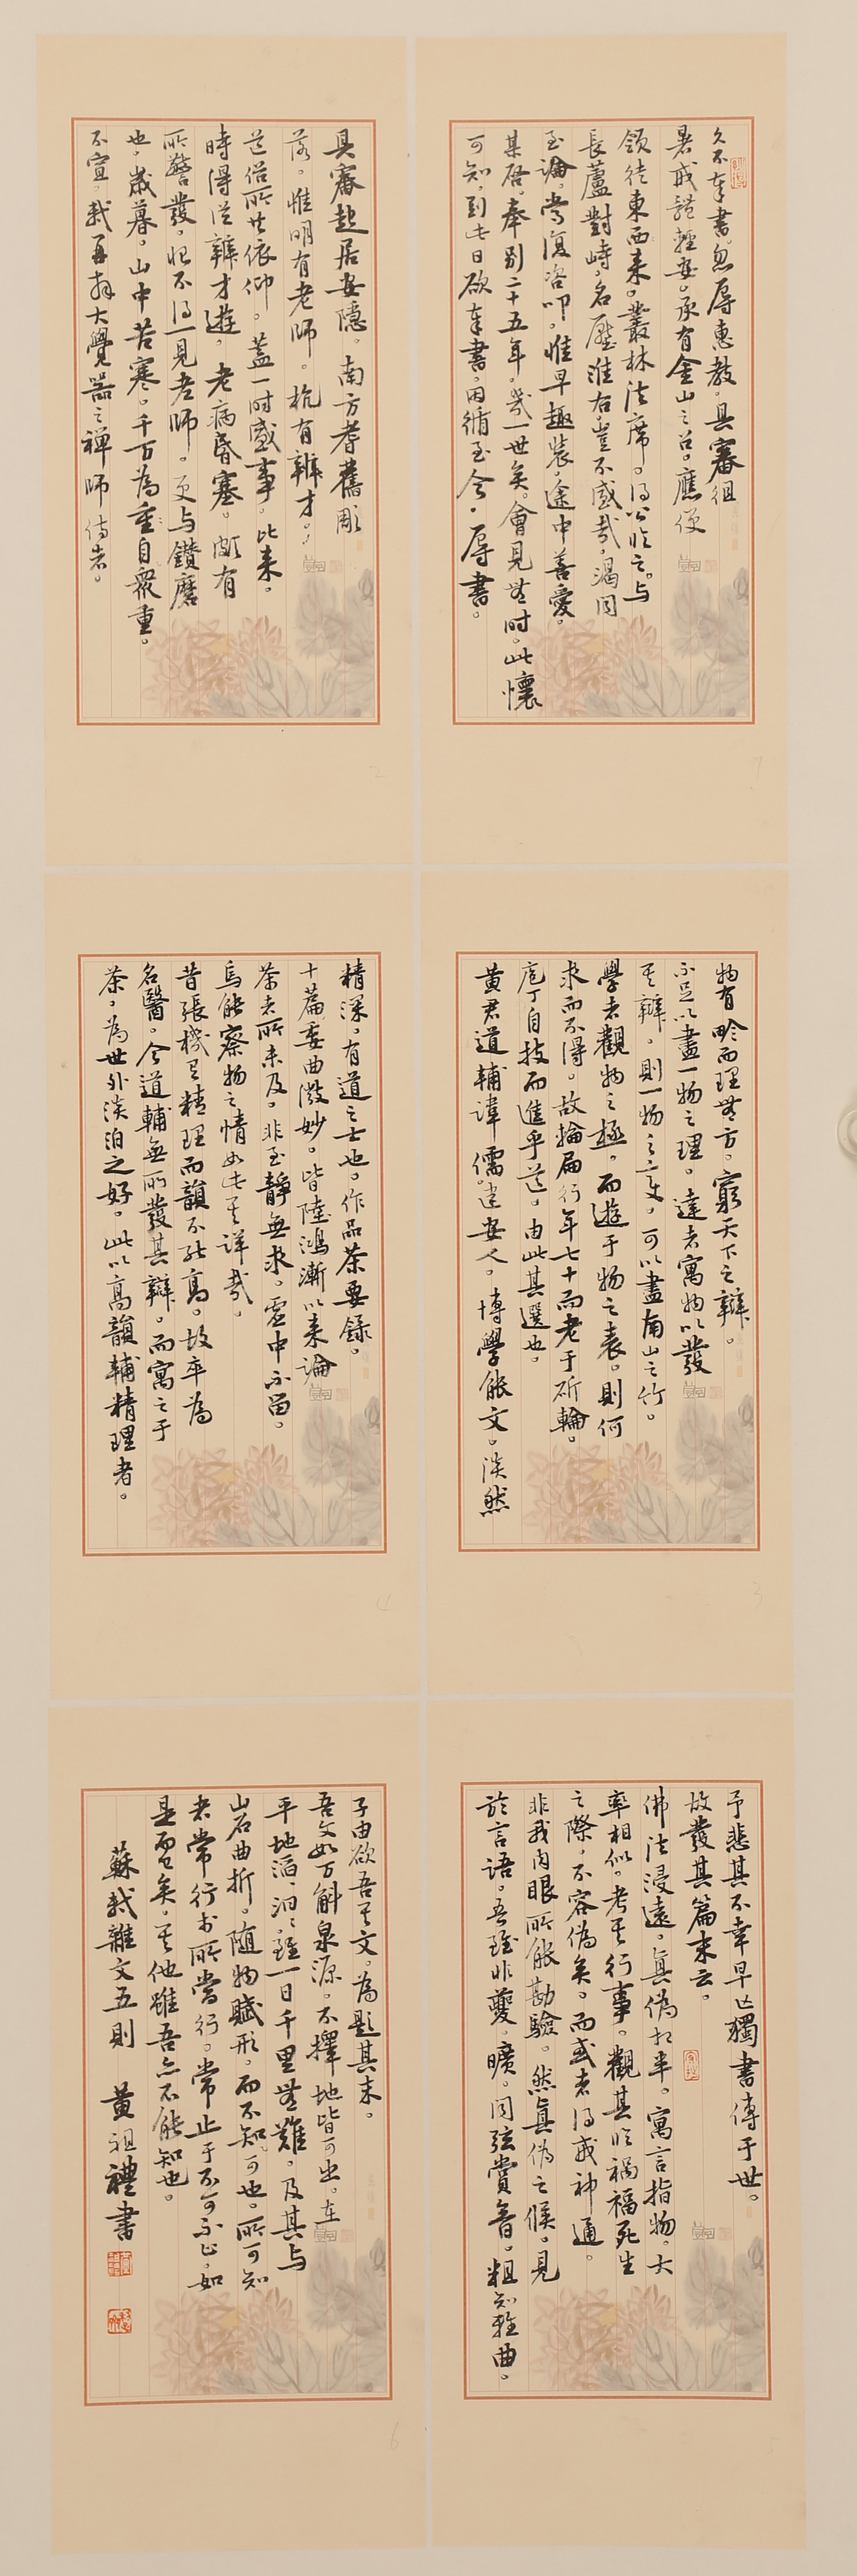 久不奉書。忽辱惠教。具審徂
暑戒體輕安。承有金山之召。應便
領徒東西來。叢林法席。得公臨之。與
長蘆對峙。名壓淮右。豈不盛哉。渴聞
至論。當復咨叩。惟早趣裝。途中善愛。
某啓。奉別二十五年。幾一世矣。會見無時。此懷
可知。到此日欲奉書。因循至今。辱書。
具審起居安隱。南方耆舊彫
落。惟明有老師。杭有辯才。
道俗所共依仰。蓋一時盛事。比來。
時得從辯才遊。老病昏塞。頗有
所警發。恨不得一見老師。更與鑽磨
也。歲暮。山中苦寒。千万為重自眾重。
不宣。軾再拜大覺器之禪師侍者。
物有畛而理無方。窮天下之辯。
不足以盡一物之理。達者寓物以發
其辯。則一物之變。可以盡南山之竹。
學者觀物之極。而遊于物之表。則何
求而不得。故輪扁行年七十而老于斫輪。
庖丁自技而進乎道。由此其選也。
黃君道輔諱儒。建安人。博學能文。淡然
精深。有道之士也。作品茶要錄。
十篇。委曲微妙。皆陸鴻漸以來論
茶者所未及。非至靜無求。虛中不留。
烏能察物之情如此其詳哉。
昔張機有精理而韻不能高。故卒為
名醫。今道輔無所發其辯。而寓之于
茶。為世外淡泊之好。此以高韻輔精理者。
予悲其不幸早亡獨書傳于世。
故發其篇末云。
佛法浸遠。真偽相半。寓言指物。大
率相似。考其行事。觀其臨禍福死生
之際。不容偽矣。而或者得戒神通。
非我肉眼所能勘驗。然真偽之候。見
於言語。吾雖非夔。曠。聞弦賞音。粗知雅曲。
子由欲吾其文。為題其末。
吾文如万斛泉源。不擇地皆可出。在
平地滔滔汩汩。雖一日千里無難。及其與
山石曲折。隨物賦形。而不知可也。所可知
者常行於所當行。常止于不可不止。如
是而已矣。其他雖吾亦不能知也。
蘇軾雜文五則 黃祖禮書